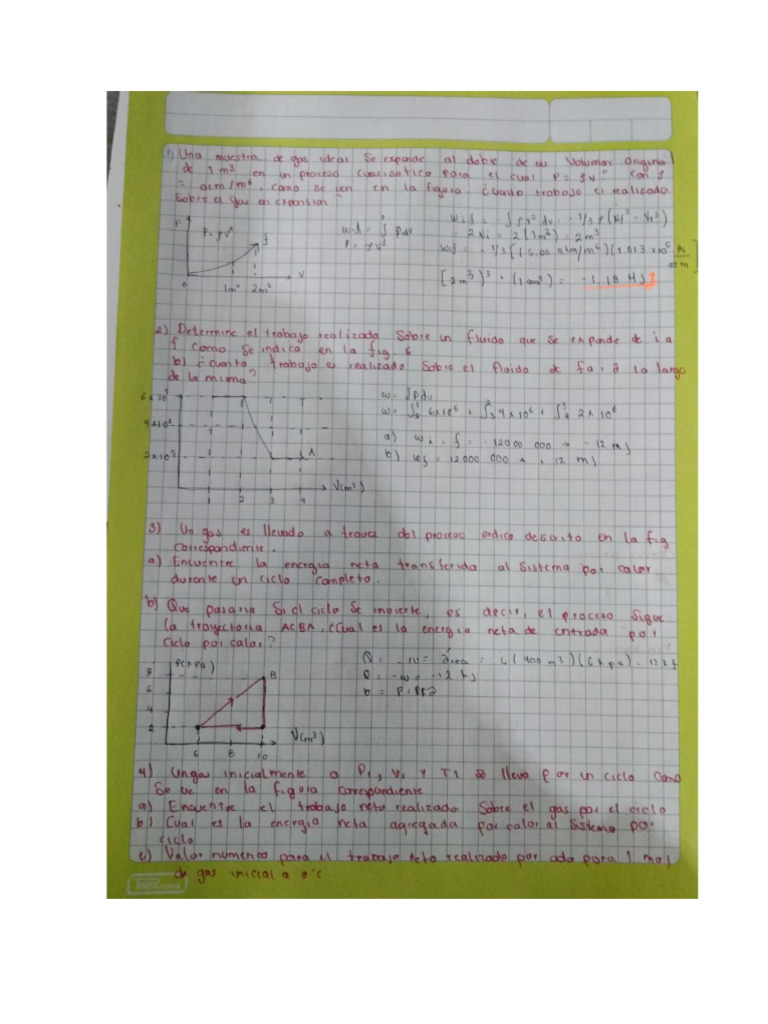 1) Una muestra de gas ideal se expande al doble de su volumen original
de 1 m³ en un proceso cuasiestatico para el cual P = αV² con α
= atm/m⁶, como se en en la figura ¿cuanto trabajo es realizado
sobre el gas en expansion?
P
P = αV²
f
V
0
1m³ 2m³
P dv
Wif = - ∫ αv² dv = - 1/3 α (Vf³ - Vi³)
= 2 Vi = 2 (1m³) = 2m³
Wif = - 1/3 [(5.00 atm/m⁶)(1.013 x10⁵ Pa/atm
[2m³)³ + (1 m³) = -1.18 MJ
2) Determine el trabajo realizado Sobre un fluido que se expande de i a
f como se indica en la fig 6
b) ¿cuanto trabajo es realizado sobre el fluido de f a i a lo largo
de la misma?
w = ∫Pdv
w = ∫ 6x10⁶ + ∫ 4x10⁶ + ∫ 2x10⁶
a) wi - f = -12000 000 → -12 mJ
b) = 12000 000 12 mJ
6 x 10⁶
4x10⁶
2x10⁶
V(m³)
1 2 3 4
3) Un gas es llevado a travez del proceso descrito en la fig
correspondiente.
a) Encuentre la energia neta transferida al sistema por calor
durante un ciclo completo.
b) Que pasaria Si el ciclo Se invierte, es decir, el proceso sigue
la trayectoria ACBA, ¿Cual es la energia neta de entrada por
ciclo por calor?
Q = -w = area = (400 m³)(6 kpa) = 12 kJ
Q = -w = -12 kJ
P(kPa)
8
6
4
2
B
V(m³)
6 8 10
4) Un gas inicialmente a P1, V1 y T1 se lleva por un ciclo como
Se ve en la figura correspondiente
a) Encuentre el trabajo neto realizado Sobre el gas por el ciclo
b) Cual es la energia neta agregada por calor al sistema por
ciclo
c) Valor numerico para el trabajo neto realizado por ciclo para 1 mol
de gas inicial a 0°c